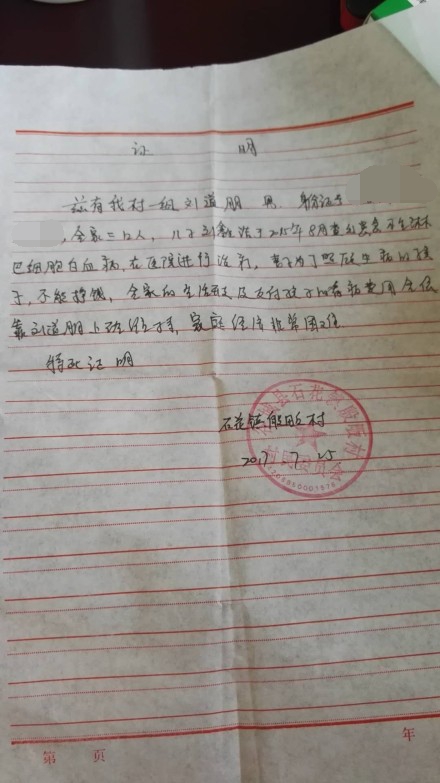 证 明
兹有我村一组刘道朋 男 身份证号
,全家三口人,儿子刘 于2015年8月查出患急性淋
巴细胞白血病,在医院进行治疗,妻子为了照顾生病的孩
子,不能挣钱,全家的生活开支及支付孩子的看病费用全依
靠刘道朋上班维持,家庭经济非常困难
特此证明
石花镇 村
2017 7.25
村民委员会
第 页 年